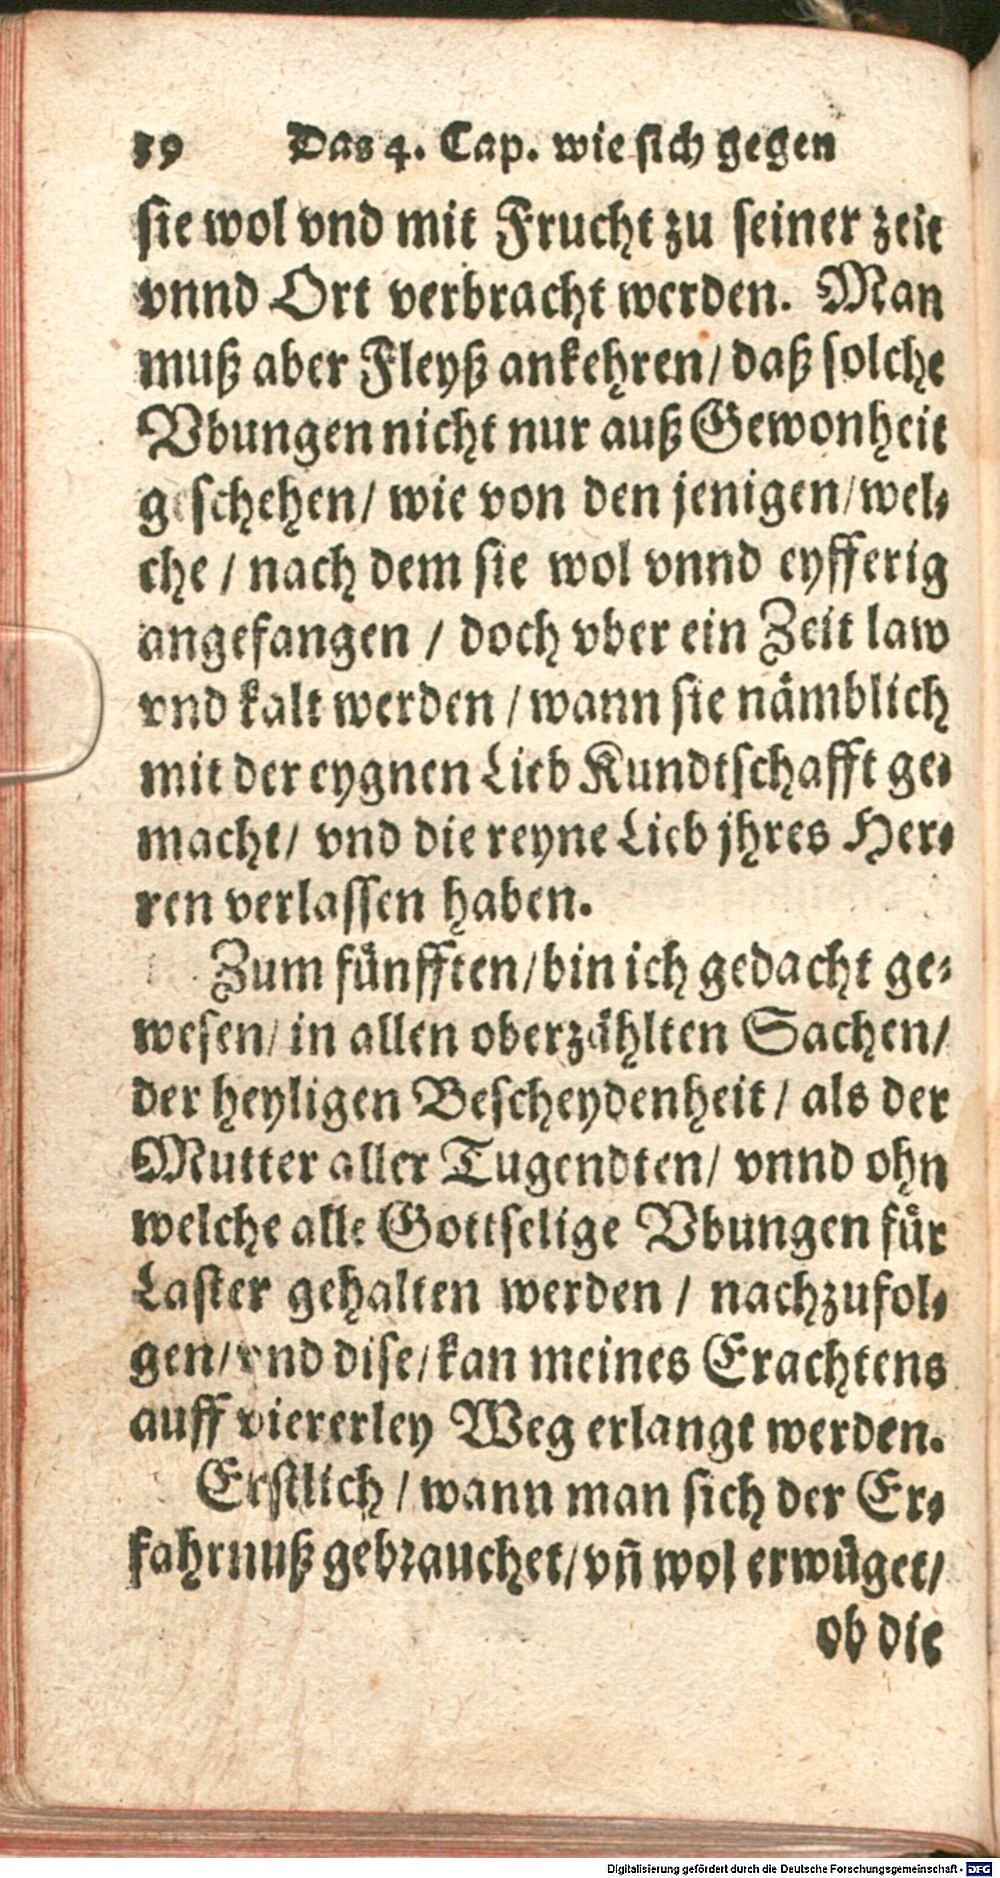 39 Das 4. Cap. wie sich gegen
sie wol vnd mit Frucht zu seiner zeit
vnnd Ort verbracht werden. Man
muß aber Fleyß ankehren/ daß solche
Vbungen nicht nur auß Gewonheit
geschehen/ wie von den jenigen/ wel-
che / nach dem sie wol vnnd eyfferig
angefangen / doch vber ein Zeit law
vnd kalt werden / wann sie nämblich
mit der eygnen Lieb Kundtschafft ge-
macht/ vnd die reyne Lieb jhres Her-
ren verlassen haben.
Zum fünfften/ bin ich gedacht ge-
wesen/ in allen oberzählten Sachen/
der heyligen Bescheydenheit / als der
Mutter aller Tugendten/ vnnd ohn
welche alle Gottselige Vbungen für
Laster gehalten werden / nachzufol-
gen/ vnd dise/ kan meines Erachtens
auff viererley Weg erlangt werden.
Erstlich / wann man sich der Er-
fahrnuß gebrauchet/ vñ wol erwüget/
ob die
Digitalisierung gefördert durch die Deutsche Forschungsgemeinschaft - DFG